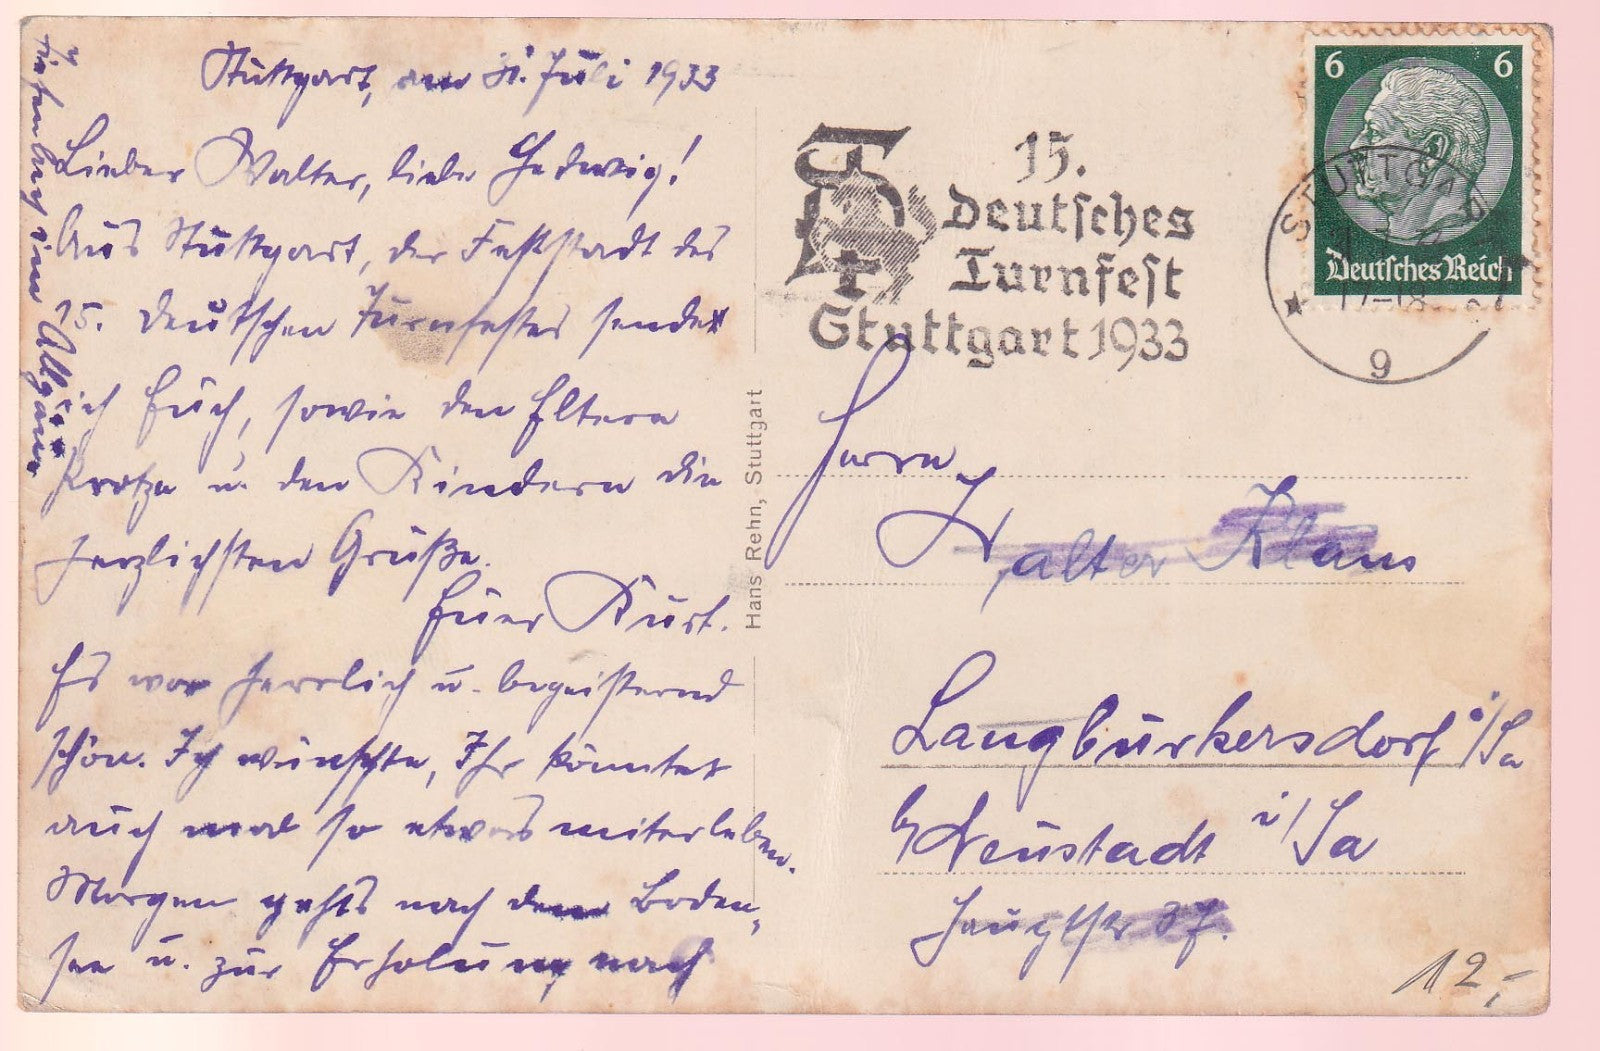 Stuttgart, am 31. Juli 1933
Lieber Walter, liebe Hedwig!
Aus Stuttgart, der Feststadt des
15. deutschen Turnfestes sendet
ich Euch, sowie den Eltern
u. den Kindern die
herzlichsten Grüße.
Euer Kurt.
Es war herrlich u. begeisternd
schön. Ich wünschte, Ihr könntet
auch mal so etwas miterleben.
Morgen gehts nach dem Boden-
see u. zur Erholung nach
im Allgäu
Hans Rehn, Stuttgart
15.
Deutsches
Turnfest
Stuttgart 1933
6 6
Deutsches Reich
STUTTGART
17-18
9
Herrn
Walter Klaus
Langburkersdorf i/Sa
b/Neustadt i/Sa
Hauptstr 37.
12,-